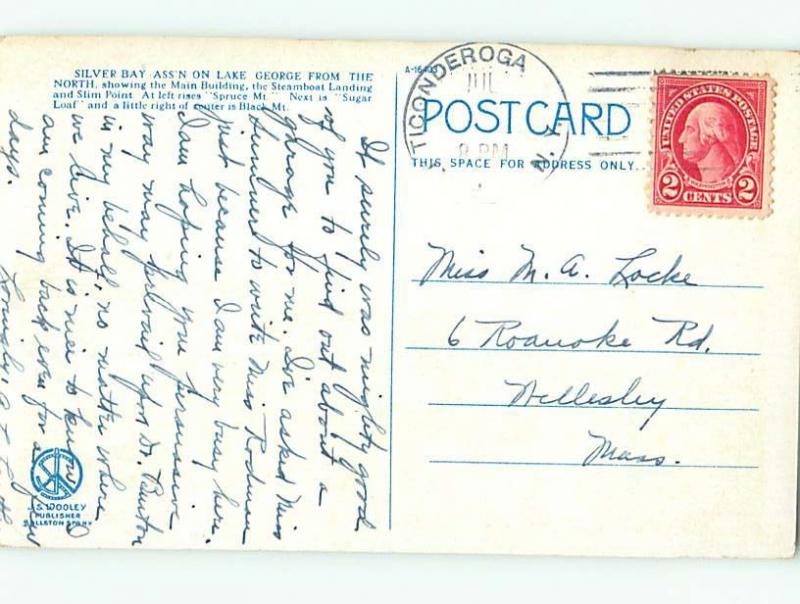 SILVER BAY ASS'N ON LAKE GEORGE FROM THE
NORTH, showing the Main Building, the Steamboat Landing
and Slim Point. At left rises "Spruce Mt." Next is "Sugar
Loaf" and a little right of center is Black Mt.
It surely was mighty good
of you to find out about a
garage for me. I've asked Miss
to write Miss
just because I am very busy here.
I am hoping your persuasive
way may prevail upon Dr.
in my behalf, no matter where
we live. It is nice to know I
am coming back even for a few
days.
J.S. WOOLEY
PUBLISHER
BALLSTON SPA N.Y.
A-16403
TICONDEROGA
JUL
8 PM
N.Y.
POST CARD
THIS SPACE FOR ADDRESS ONLY.
UNITED STATES POSTAGE
WASHINGTON
2 CENTS 2
Miss M. A. Locke
6 Roanoke Rd.
Wellesley
Mass.